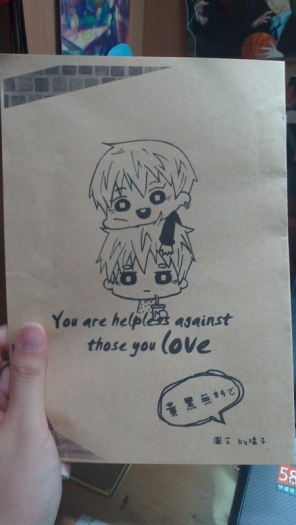 You are helpless against
those you love
黃黑無料
圖文 by橘子
58